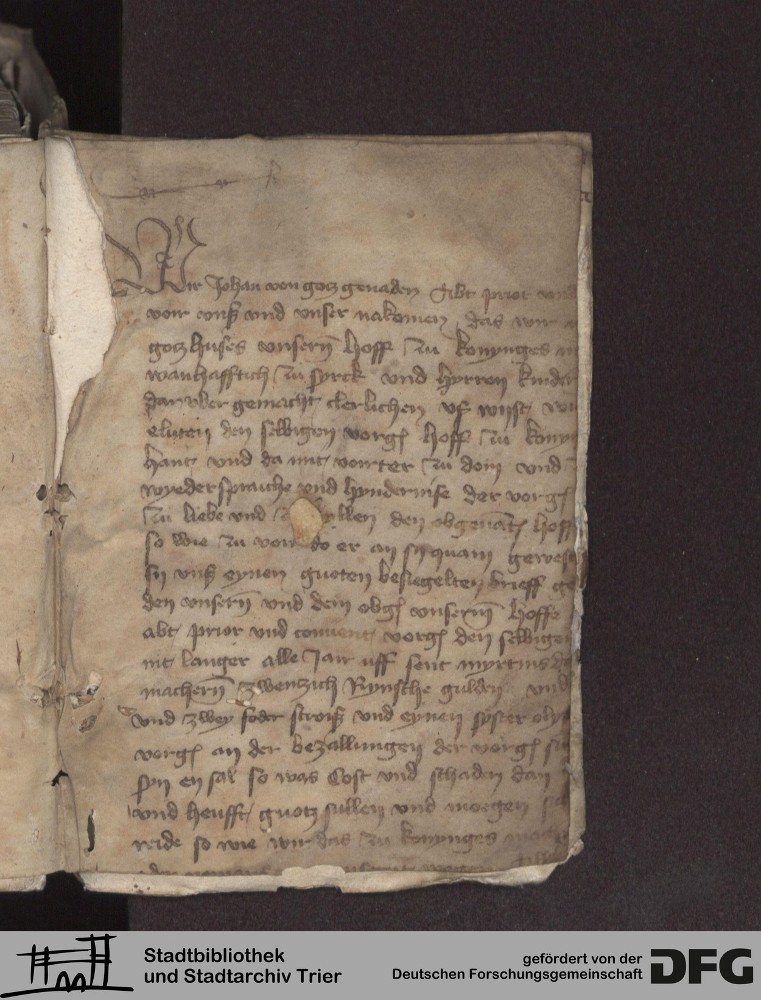 Wir Johan von gotz genaden Abt prior vnd
vor vnß vnd vnser nakomen das wir
gotzhuses vnsern hoff zu konynges
wanhafftich zu syrck vnd hyrren kinder
dar vber gemacht clerlichen vß wyst
eluten den selbigen vorg hoff zu kony
hant vnd da mit vorter zu doin vnd
wyedersprache vnd hyndernise der vorg
zu liebe vnd willen den obgenāt hoff
so wie zu vor do er an sy quam gewest
sy vnß eynen gueten besiegelten brieff ge
den vnsern vnd dem obg vnserm hoffe
abt prior vnd convent vorg den selbigen
nit langer alle Jair uff sent mertins
machern zwenzich Rynsche gulden vnd
vnd zwey foder stroiß vnd eynen syster oly
vorg an der bezallungen der vorg
syn en sal so was Cost vnd schaden dan
vnd heufft guotz sullen vnd moegen
reide so wie wir das zu konynges
Stadtbibliothek
und Stadtarchiv Trier
gefördert von der
Deutschen Forschungsgemeinschaft
DFG